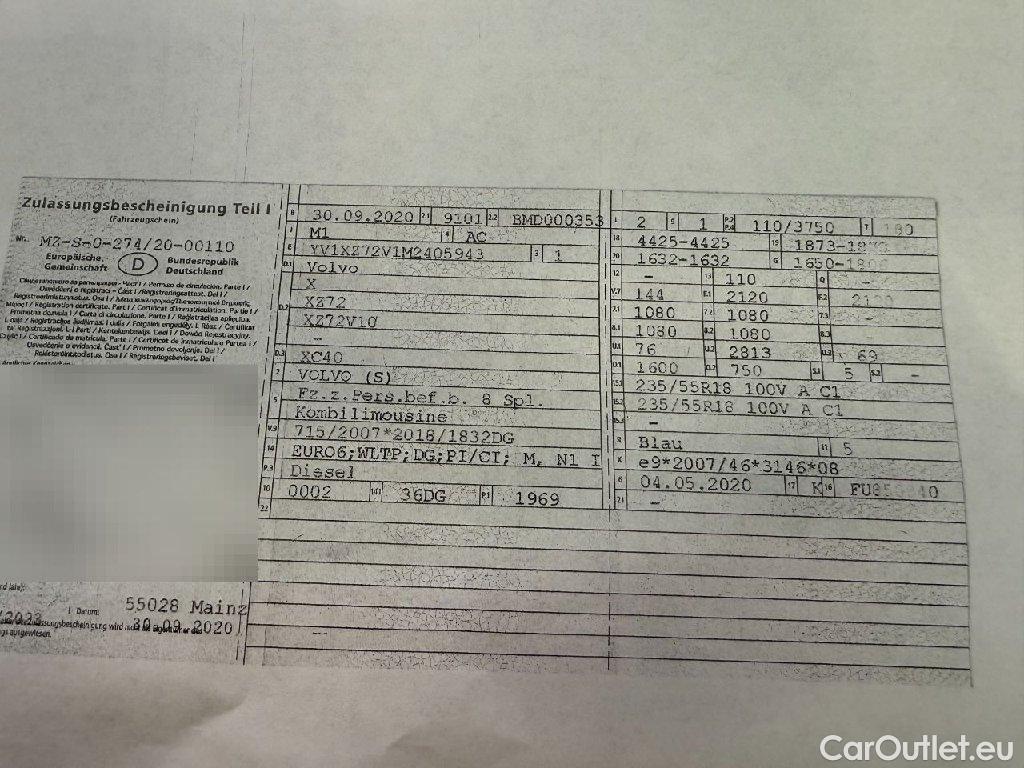 Zulassungsbescheinigung Teil I
(Fahrzeugschein)
Nr. MZ-S-0-274/20-00110
Europäische Gemeinschaft D Bundesrepublik Deutschland
B 30.09.2020 2.1 9101 2.2 BMD000353
J M1 4 AC
E YV1XZ72V1M2405943 3 1
D.1 Volvo
X
D.2 XZ72
XZ72V10
-
D.3 XC40
2 VOLVO (S)
5 Fz.z.Pers.bef.b. 8 Spl.
Kombilimousine
V.9 715/2007*2018/1832DG
14 EURO6;WLTP;DG;PI/CI; M, N1 I
P.3 Diesel
10 0002 14.1 36DG P.1 1969
22
L 2 9 1 P.2 P.4 110/3750 T 180
18 4425-4425 19 1873-
20 1632-1632 G 1650-
12 - 13 110 Q -
V.7 144 F.1 2120 F.2 2120
7.1 1080 7.2 1080 7.3 -
8.1 1080 8.2 1080 8.3 -
U.1 76 U.2 2813 U.3 69
O.1 1600 O.2 750 S.1 5 S.2 -
15.1 235/55R18 100V A C1
15.2 235/55R18 100V A C1
15.3 -
R Blau 11 5
K e9*2007/46*3146*08
6 04.05.2020 17 K 16
21 -
/2023 Datum: 55028 Mainz
30.09.2020
CarOutlet.eu